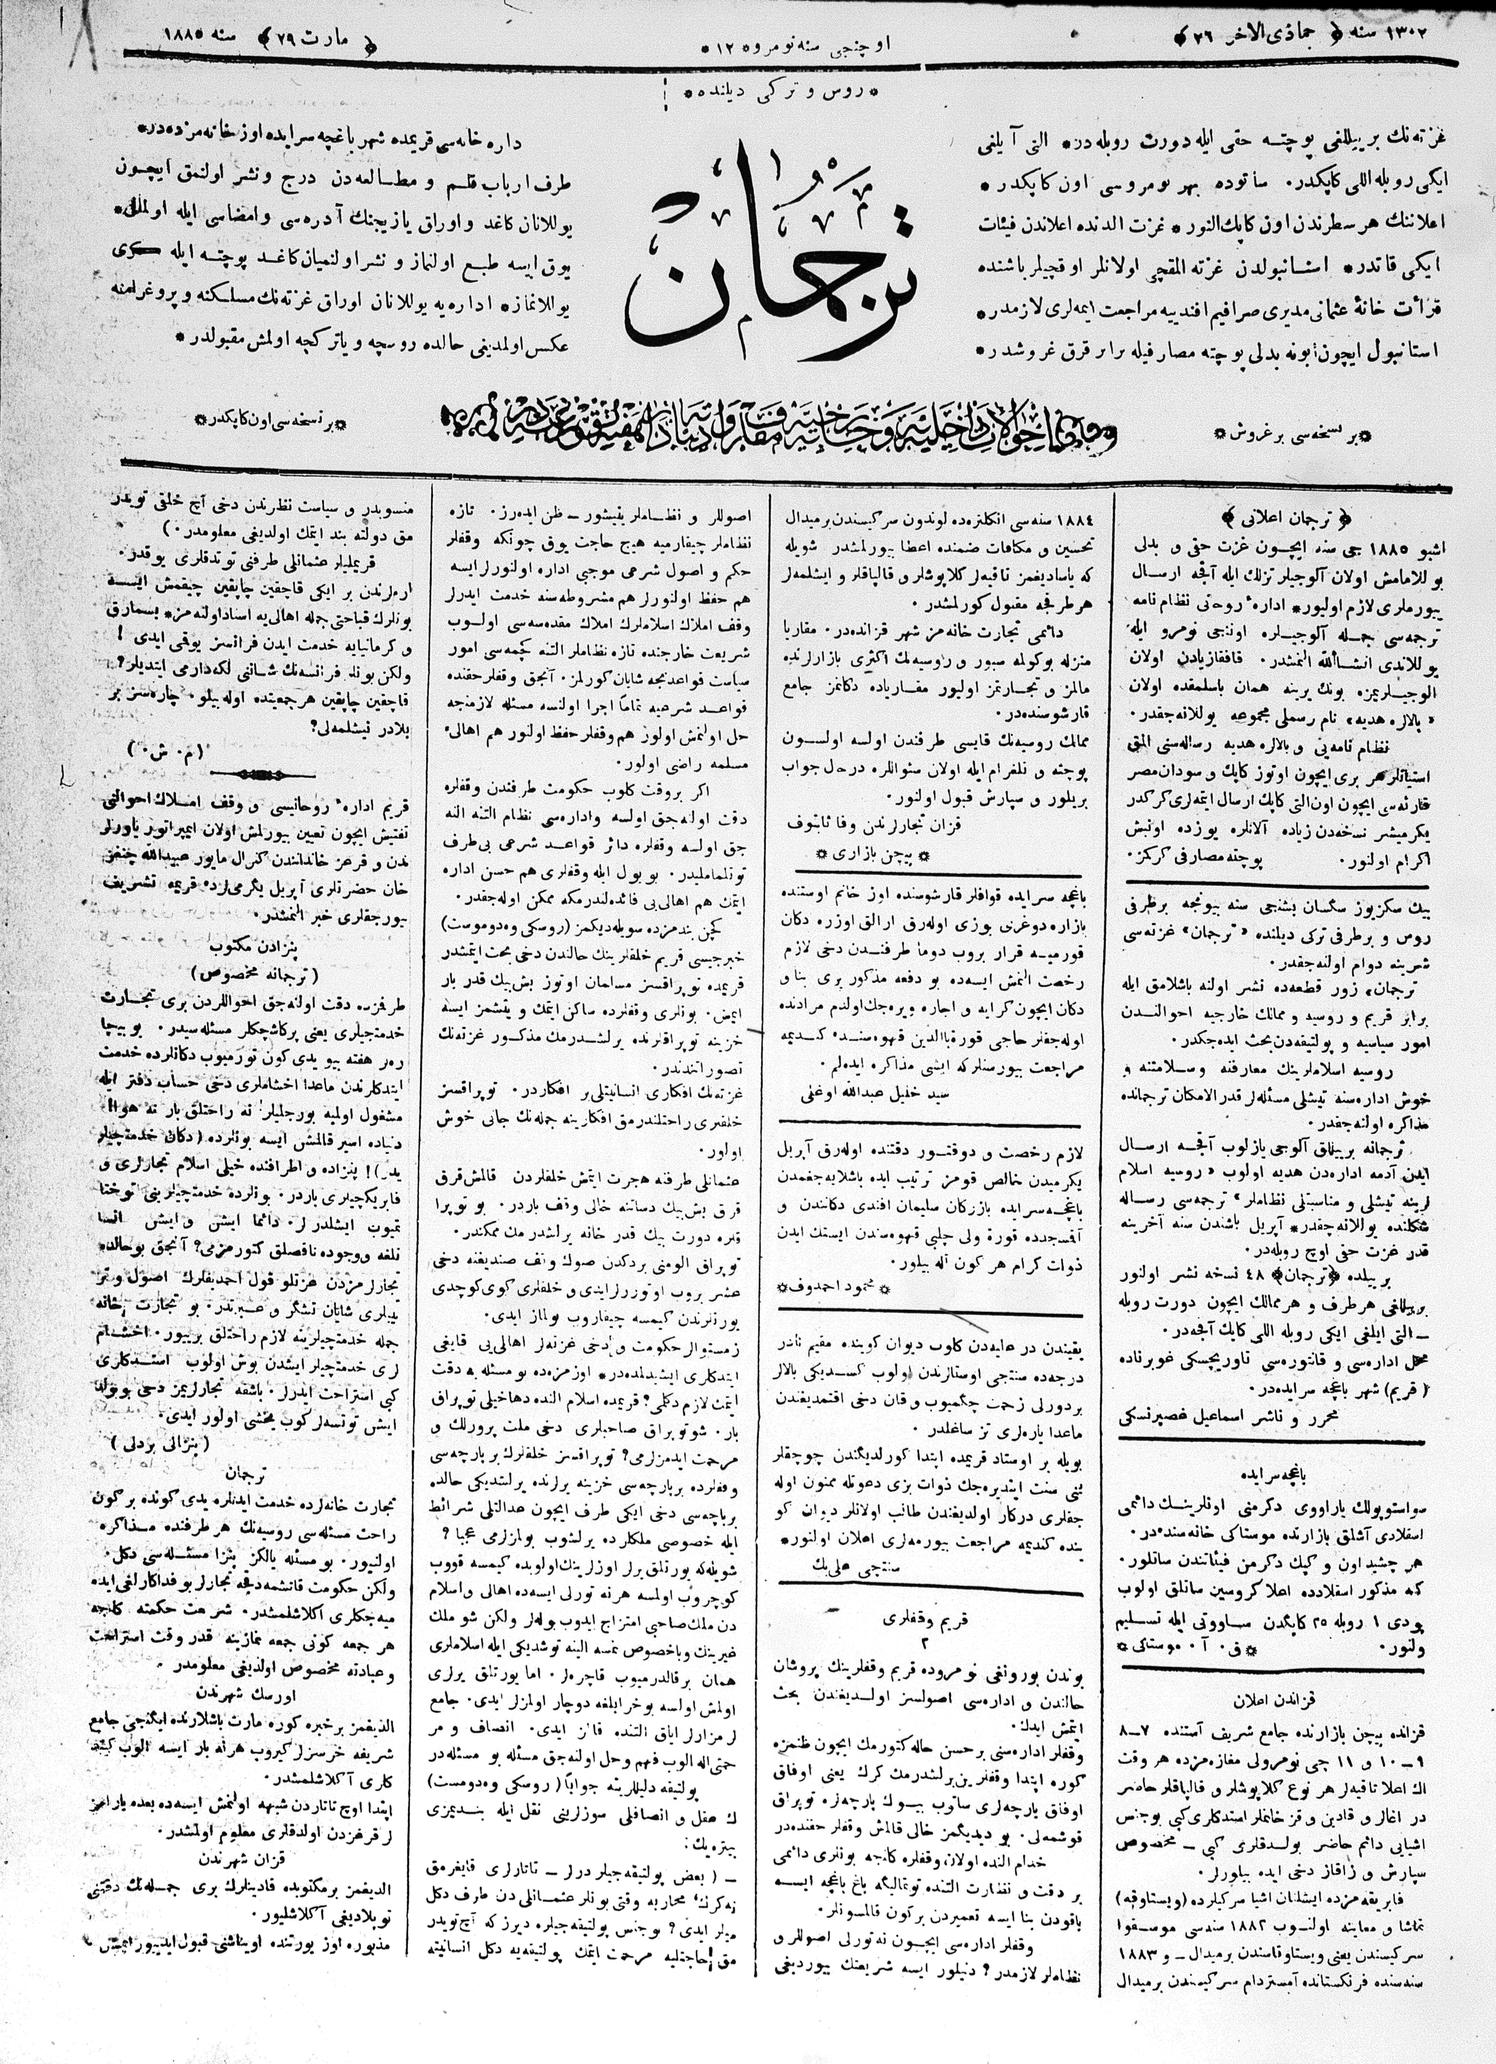 ١٣٠٢ سنه ﴿ جماذى الاخر ٢٦ ﴾
اوچنجى سنه نومرو ١٢
﴿ مارت ٢٩ ﴾ سنه ١٨٨٥
* روس و تركى ديلنده *
غزته‌نك بر ييللغى پوچته حقى ايله دورت روبله‌در* التى آيلغى
ايكى روبله اللى كاپكدر. ساتوده بهر نومروسى اون كاپكدر*
اعلاننك هر سطرندن اون كاپك النور* غزت الدنده اعلاندن فيئات
ايكى قاتدر* استانبولدن غزته المقچى اولانلر اوقچيلر باشنده
قرأت خانهٔ عثمانى مديرى صرافيم افندييه مراجعت ايمه‌لرى لازمدر*
استانبول ايچون ابونه بدلى پوچته مصارفيله برابر قرق غروشدر*
ترجمان
داره خانه‌سى قريمده شهر باغچه سرايده اوز خانه مزده‌در*
طرف ارباب قلم و مطالعه‌دن درج و نشر اولنمق ايچون
يوللانان كاغد و اوراق يازيجنك آدره‌سى و امضاسى ايله اولملى*
يوق ايسه طبع اولنماز و نشر اولنميان كاغد پوچته ايله كرى
يوللانماز* اداره‌يه يوللانان اوراق غزته‌نك مسلكنه و پروغرامنه
عكس اولمديغى حالده روسچه و ياتركچه اولمش مقبولدر*
* بر نسخه‌سى بر غروش *
* بر نسخه‌سى اون كاپكدر *
﴿ ترجمان اعلانى ﴾
اشبو ١٨٨٥ جى سنه ايچون غزت حقى و بدلى
يوللامامش اولان آلوجيلر تزلك ايله آقچه ارسال
بيورملرى لازم اوليور* ادارهٔ روحانى نظام نامه
ترجمه‌سى جمله آلوجيلره اوننجى نومرو ايله
يوللاندى انشاالله المشدر. قافقازيادن اولان
الوجيلريمزه بونك يرينه همان باسلمقده اولان
«بالالره هديه» نام رسملى مجموعه يوللانه‌جقدر.
نظام نامه‌يى و بالالره هديه رساله‌سنى المق
استيانلر هر برى ايچون اوتوز كاپك و سودان مصر
قارئه‌سى ايچون اون التى كاپك ارسال ايتمه‌لرى كركدر
يكرميشر نسخه‌دن زياده آلانلره يوزده اونبش
اكرام اولنور. پوچته مصارفى كركز.
بيك سكزيوز سكسان بشنجى سنه بيونجه برطرفى
روس و برطرفى تركى ديلنده «ترجمان» غزته‌سى
نشرينه دوام اولنه‌جقدر.
ترجمان، زور قطعه‌ده نشر اولنه باشلامق ايله
برابر قريم و روسيه و ممالك خارجيه احوالندن
امور سياسيه و پولتيقه‌دن بحث ايده‌جكدر.
روسيه اسلاملرينك معارفنه و سلامتنه و
خوش اداره‌سنه تيشلى مسئله‌لر قدر الامكان ترجمانده
مذاكره اولنه‌جقدر.
ترجمانه بر ييللق آلوجى يازلوب آقچه ارسال
ايدن آدمه اداره‌دن هديه اولوب «روسيه اسلام
لرينه تيشلى و مناسبتلى نظاملر» ترجمه‌سى رساله
شكلنده يوللانه‌جقدر* آپريل باشندن سنه آخرينه
قدر غزت حقى اوچ روبله‌در.
بر ييلده ﴿ترجمان﴾ ٤٨ نسخه نشر اولنور
بر ييللغى هر طرف و هر ممالك ايچون دورت روبله
ــ التى ايلغى ايكى روبله اللى كاپك آقچه‌در.
محل اداره‌سى و قانتوره‌سى تاوريچسكى غوبرناده
(قريم) شهر باغچه سرايده‌در.
محرر و ناشر اسماعيل غصپرنسكى
باغچه سرايده
سواستوپولك ياراووى دكرمنى اونلرينك دائمى
اسقلادى آشلق بازارنده موستاكى خانه‌سنده‌در.
هر چشيد اون و كپك دكرمن فيئاتندن ساتلور.
كنه مذكور اسقلادده اعلا كروسين ساتلق اولوب
پودى ١ روبله ٢٥ كاپكدن مساووتى ايله تسليم
ولنور. * ق. آ. موستاكى *
قزاندن اعلان
قزانده پيچن بازارنده جامع شريف آستنده ٧ــ٨
٩ــ١٠ و ١١ جى نومرولى مغازه‌مزده هر وقت
اك اعلا تاقيه‌لر هر نوع كلاپوشلر و قالپاقلر حاضر
در اغالر و قادين و قز خانملر استدكلرى كبى بوجنس
اشيايى دائم حاضر بولدقلرى كبى ــ مخصوص
سپارش و زاقاز دخى ايده بيلورلر.
فابريقه‌مزده ايشلنان اشيا سركيلرده (ويستاوقه)
تماشا و معاينه اولنوب ١٨٨٢ سنه‌سى موسقوا
سركيسندن يعنى ويستاوقاسندن برميدال ــ و ١٨٨٣
سنه‌سنده فرنكستانده آمستردام سركيسندن برميدال
١٨٨٤ سنه‌سى انكلتره‌ده لوندون سركيسندن برميدال
تحسين و مكافات ضمنده اعطا بيورلمشدر شويله
كه ياساديغمز تاقيه‌لر كلاپوشلر و قالپاقلر و ايشلمه‌لر
هر طرفجه مقبول كورلمشدر.
دائمى تجارت خانه‌مز شهر قزانده‌در. مقاريا
منزله بوكولمه سبور و روسيه‌نك اكثرى بازارلرنده
مالمز و تجارتمز اوليور مقارياده دكانمز جامع
قارشوسنده‌در.
ممالك روسيه‌نك قايسى طرفندن اولسه اولسون
پوچته و تلغرام ايله اولان سئواللره درحال جواب
بريلور و سپارش قبول اولنور.
قزان تجارلرندن وفا ثابتوف
* پيچن بازارى *
باغچه سرايده قوافلر قارشوسنده اوز خانم اوستنده
بازاره دوغرى يوزى اوله‌رق ارالق اوزره دكان
قورميه قرار بروب دوما طرفندن دخى لازم
رخصت المش ايسه‌ده بو دفعه مذكور يرى بنا و
دكان ايچون كرايه و اجاره ويره‌جك اولدم مرادنده
اوله‌جقلر حاجى قوره باالدين قهوه‌سنده كنديمه
مراجعت بيورسنلركه ايشى مذاكره ايده‌لم.
سيد خليل عبدالله اوغلى
لازم رخصت و دوقتور دقتنده اوله‌رق آپريل
يكرميدن خالص قومز ترتيب ايده باشلايه‌جغمدن
باغچه سرايده بازركان سليمان افندى دكانندن و
آقمسجدده قوره ولى چلبى قهوه‌سندن ايستك ايدن
ذوات كرام هر كون آله بيلور.
* محمود احمدوف *
يقيندن در عليه‌دن كلوب ديوان كوينده مقيم نادر
درجه‌ده سنتجى اوستالرندن اولوب كسديكى بالالر
بردورلى زحمت چكميوب و قان دخى اقتمديغندن
ماعدا ياره‌لرى تز ساغلدر.
بويله بر اوستاد قريمده ابتدا كورلديكندن چوجقلر
ينى سنت ايتديره‌جك ذوات بزى دعوتله ممنون اوله
جقلرى دركار اولديغندن طالب اولانلر ديوان كو
ينده كنديمه مراجعت بيورمه‌لرى اعلان اولنور*
سنتجى على بك
قريم وقفلرى
٢
بوندن بورونغى نومروده قريم وقفلرينك پروشان
حالندن و اداره‌سى اصولسز اولديغندن بحث
ايتمش ايدك.
وقفلر اداره‌سنى بر حسن حاله كتورمك ايچون ظنمزه
كوره ابتدا وقفلرين برلشدرمك كرك يعنى اوفاق
اوفاق پارچه‌لرى ساتوب بيوك پارچه‌لره توپراق
قوشمه‌لى. بو ديديكمز خالى قالمش وقفلر حقنده‌در
خدام النده اولان وقفلره كلنجه بونلرى دائمى
بر دقت و نظارت التنده توتماليكه باغ باغچه ايسه
باقودن بنا ايسه تعميردن برگون قالمسونلر.
وقفلر اداره‌سى ايچون نه‌تورلى اصوللر و
نظاملر لازمدر؟ دنيلور ايسه شريعتك بيورديغى
اصوللر و نظاملر يقيشور ــ ظن ايده‌رز. تازه
نظاملر چيقارميه هيج حاجت يوق چونكه وقفلر
حكم و اصول شرعى موجبى اداره اولنورلر ايسه
هم حفظ اولنورلر هم مشروطه‌سنه خدمت ايدرلر
وقف املاك اسلاملرك املاك مقدسه‌سى اولوب
شريعت خارجنده تازه نظاملر التنه كچمه‌سى امور
سياست قواعدنجه شايان كورلمز. آنجق وقفلر حقنده
قواعد شرعيه تماماً اجرا اولنسه مسئله لازمنجه
حل اولنمش اولور هم وقفلر حفظ اولنور هم اهالئ
مسلمه راضى اولور.
اكر بروقت كلوب حكومت طرفندن وقفلره
دقت اوله‌جق اولسه و اداره‌سى نظام التنه النه
جق اولسه وقفلره دائر قواعد شرعى بى‌طرف
توتلماملیدر. بو يول ايله وقفلرى هم حسن اداره
ايتمك هم اهالى‌يى فائده‌لندرمكه ممكن اوله‌جقدر.
كچن بندمزده سويله‌ديكمز (روسكى وه‌دوموست)
خبرجيسى قريم خلقلرينك حالندن دخى بحث ايتمشدر
قريمده توپراقسز مسلمان اوتوز بش‌بيك قدر بار
ايمش. بونلرى وقفلرده ساكن ايتمك و يتشمز ايسه
خزينه توپراقلرنده يرلشدرمك مذكور غزته‌نك
تصورالنددر.
غزته‌نك افكارى انسانيتلى بر افكاردر. توپراقسز
خلقنرى راحتلندرمق افكارينه جمله‌نك جانى خوش
اولور.
عثمانلى طرفنه هجرت ايتمش خلقلردن قالمش قرق
قرق بش‌بيك دساتنه خالى وقف باردر. بو توپرا
قلره دورت بيك قدر خانه يرلشدرمك ممكندر.
توپراق الومنى بردكدن صوك وقف صنديغنه دخى
عشر بروب اوتورلر ايدى و خلقلرى كوى كوچدى
يورتلرندن كيمسه چيقاروب بولماز ايدى.
زمستوالر حكومت و دخى غزته‌لر اهالى‌يى قايغى
ايتدكلرى ايشيدلمه‌ده‌در* اوزمزده بو مسئله‌يه دقت
ايتمك لازم دكلمى؟ قريمده اسلام النده دها خيلى توپراق
بار. شو توپراق صاحبلرى دخى ملت پرورلك و
مرحمت ايدمزلرمى؟ توپراقسز خلقلرك بر پارچه‌سى
وقفلرده بر پارچه‌سى خزينه يرلرنده يرلشديكى حالده
برپارچه‌سى دخى ايكى طرف ايچون عدالتلى شرائط
ايله خصوصى ملكلرده يرلشوب بولمازلرمى عجبا؟
شويله‌كه يورتلق يرلر اوزلرينك اولوبده كيمسه قووب
كوچروب اولمسه هرنه تورلى ايسه‌ده اهالى و اسلام
دن ملك صاحبى امتزاج ايدوب بولور ولكن شو ملك
غيرينك و باخصوص نمسه الينه توشديكى ايله اسلاملرى
همان برقالدرميوب قاچره‌لر. اما يورتلق يرلرى
اولمش اولسه بو خرابلغه دوچار اولمزلر ايدى. جامع
لر مزارلر اياق التنده قالمز ايدى. انصاف و مر
حمتى اله الوب فهم و حل اولنه‌جق مسئله بو مسئله‌در
پولتيقه دليللرينه جوابا (روسكى وه‌دومست)
ك عقل و انصافلى سوزلرينى نقل ايله بنديمزى
بيتره‌يك:
ــ (بعض پولتيقه‌جيلر ديرلر ــ تاتارلرى قايغرمق
نه‌كرك؛ محاربه وقتى بونلر عثمانلى دن طرف دكل
ميلر ايدى؟ بوجنس پولتيقه‌جيلره ديرز كه آچ تويدر
مق! حاجتليه مرحمت ايتمك پولتيقه‌يه دكل انسانيته
منسوبدر و سياست نظرندن دخى آچ خلقى تويدر
مق دولته بند ايتمك اولديغى معلومدر.)
قريمليلر عثمانلى طرفنى توتدقلرى يوقدر.
اره‌لرندن بر ايكى قاچقين چاپقين چيقمش ايسه
بونلرك قباحتى جمله اهالى‌يه اسناد اولنه‌مز* بسمارق
و كرمانيايه خدمت ايدن فرانسز يوقمى ايدى!
ولكن بونلر فرانسه‌نك شاننى لكه‌دارمى ايتديلر؟
قاچقين چاپقين هر جمعيتده اوله بيلور. چاره‌سز بر
بلادر نيشلمه‌لى؟
(م. ش.)
قريم ادارهٔ روحانيسى و وقف املاك احوالنى
تفتيش ايچون تعيين بيورلمش اولان ايمپراتور ياورلر
ندن و قرغز خاندانندن گنرال مايور عبيدالله چنغز
خان حضرتلرى آپريل يگرمى‌لرده قريمه تشريف
بيورجقلرى خبر المشدر.
پنزادن مكتوب
(ترجمانه مخصوص)
طرفمزده دقت اوله‌جق احواللردن برى تجارت
خدمتجيلرى يعنى پركاشچكلر مسئله‌سيدر. بو بيچا
ره‌لر هفته بيو يدى كون تورميوب دكانلرده خدمت
ايتدكلرندن ماعدا اخشاملرى دخى حساب دفتر ايله
مشغول اولميه بورجليلر؛ نه راحتلق بار نه هوا!!
دنياده اسير قالمش ايسه بونلرده (دكان خدمتجيلر
يدر)! پنزاده و اطرافنده خيلى اسلام تجارلرى و
فابريكچيلرى باردر. بونلرده خدمتچيلرينى توختا
تميوب ايشلدرلر. دائما ايشن و ايشن انسا
نلغه و وجوده ناقصلق كتورمزمى؟ آنجق بو حالده
تجارلرمزدن عزتلو قول احمديفلرك اصول و تر
تيبلرى شايان تشكر و عبرتدر. بو تجارت خانه
جمله خدمتجيلرينه لازم راحتلق بريبور. اخشام
لرى خدمتجيلر ايشدن بوش اولوب استدكلرى
كبى استراحت ايدرلر. باشقه تجارلريمز دخى بويولد
ايش توتسه‌لر كوب يخشى اولور ايدى.
(پنزالى بردلى)
ترجمان
تجارت خانه‌لرده خدمت ايدنلره يدى كونده بر كون
راحت مسئله‌سى روسيه‌نك هر طرفنده مذاكره
اولنيور. بو مسئله يالكز پنزا مسئله‌سى دكل.
ولكن حكومت قاتشمه‌دقچه تجارلر بو فداكارلغى ايده
ميه‌جكلرى اكلاشلمشدر. شريعت حكمته كلنجه
هر جمعه كونى جمعه نمازينه قدر وقت استراحت
و عبادته مخصوص اولديغى معلومدر.
اورسك شهرندن
الديغمز بر خبره كوره مارت باشلارنده ايكنجى جامع
شريفه خرسزلر كيروب هرنه بار ايسه الوب كيتد
كلرى آكلاشلمشدر.
ابتدا اوچ تاتاردن شبهه اولنمش ايسه‌ده بعده يارامز
لر قرغزدن اولدقلرى معلوم اولمشدر.
قزان شهرندن
الديغمز بر مكتوبده قادينلرك برى جمله‌نك دقتنى
توپلاديغى آكلاشليور.
مذبوره اوز يورتنده اويناشنى قبول ايدييور ايمش